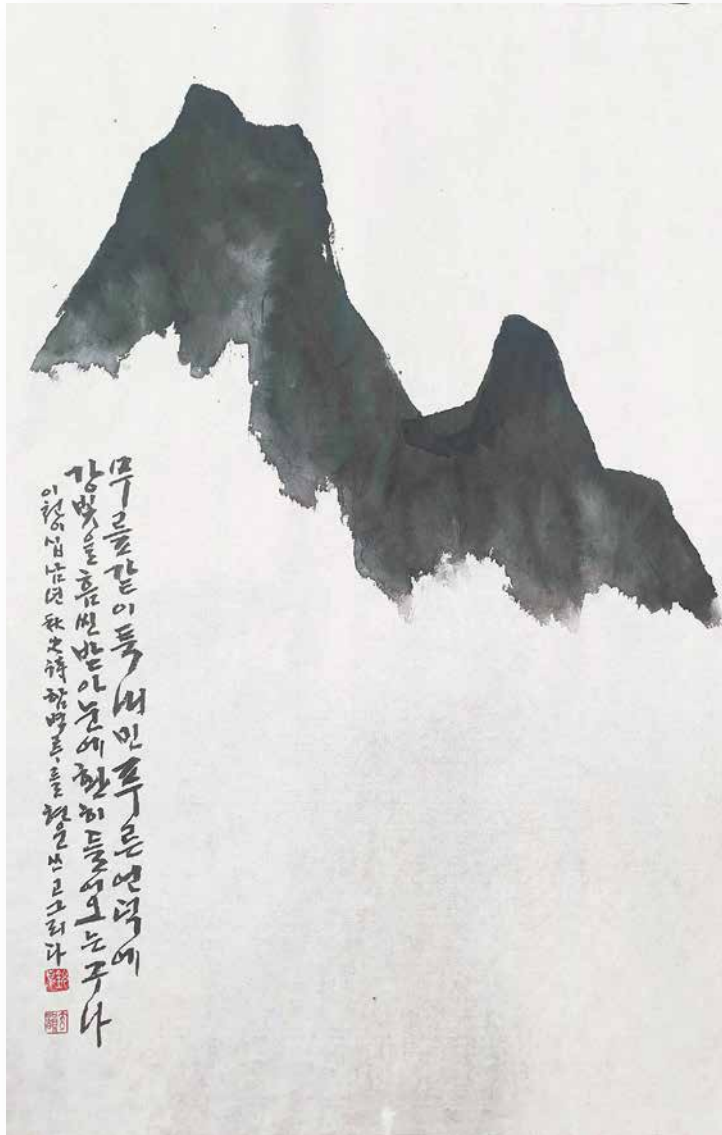 무릎같이 툭 내민 푸른 언덕에
강빛을 흠씬 받아 눈에 환히 들어오는구나
이천이십삼년 秋 之詩 함벽루를 현운 쓰고 그리다